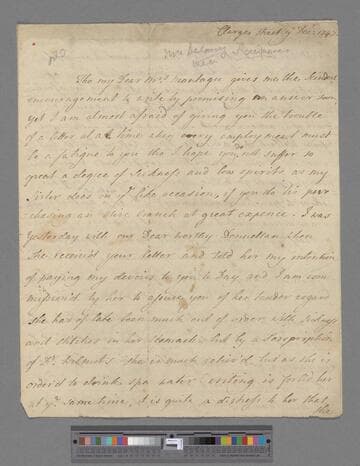 Clarges Street ye Dec: 1742
Tho my Dear Mrs Montagu gives me the kindest
encouragement to write by promising no answer soon,
yet I am almost afraid of giving you the trouble
of a letter at a time when every employment must
be a fatigue to you tho I hope you do not suffer so
great a degee of Sickness and low spirits as my
Sister does on ye like occasion, if you do tis pur
chasing an Olive branch at great expence. I was
yesterday with our Dear worthy Donnellan when
she receiv'd your letter and told her my intention
of paying my devoirs to you to Day and I am com
missiond by her to assure you of her tender regard
she has of late been much out of order with
and stitches in her Stomach but by a
of Dr. she is much reliev'd but as she is
order'd to drink spa water writing is forbid her
at ye same time, it is quite a distress to her that
she